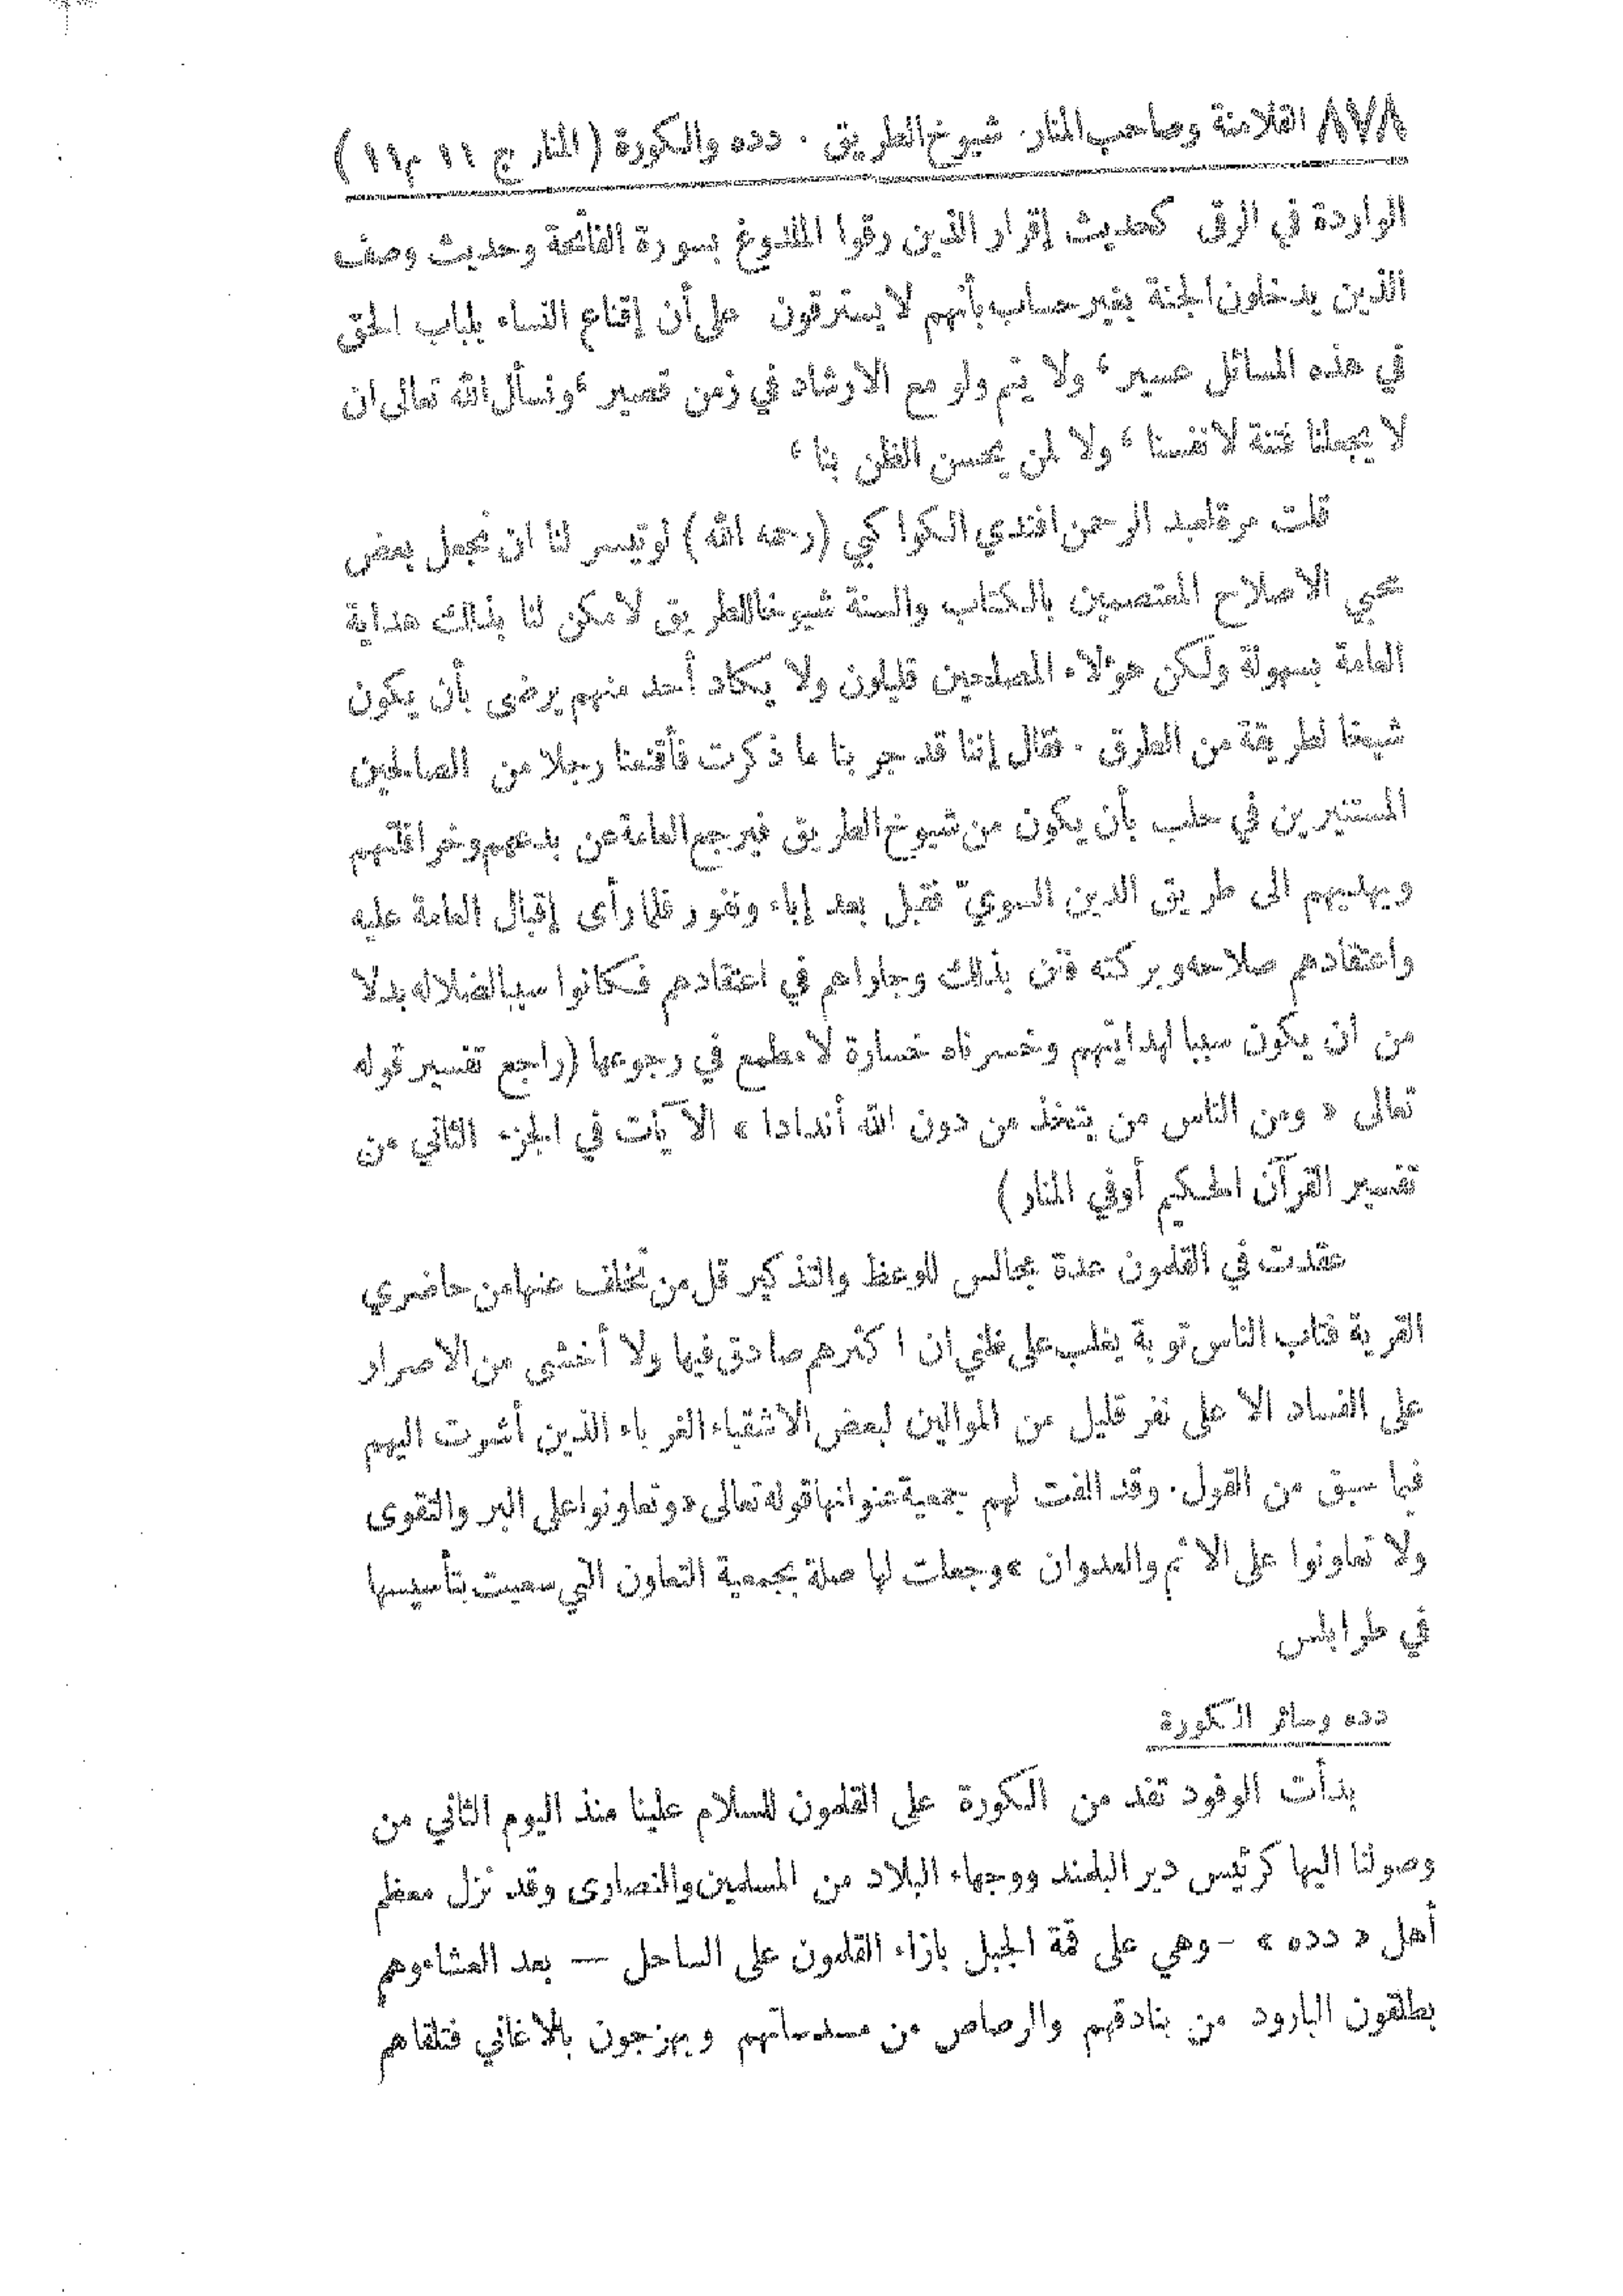 ٨٧٨ القلامنة وصاحب المنار. شيوخ الطريق . دده والكورة ( المنار ج ١١ م ١١ )
الواردة في الرقى كحديث إقرار الذين رقوا الملدوغ بسورة الفاتحة وحديث وصف
الذين يدخلون الجنة بغير حساب بأنهم لا يسترقون على أن إقناع النساء بلباب الحق
في هذه المسائل عسير، ولا يتم ولو مع الارشاد في زمن قصير، ونسأل الله تعالى ان
لا يجعلنا فتنة لانفسنا، ولا لمن يحسن الظن بنا،
قلت مرة لعبد الرحمن افندي الكواكبي (رحمه الله) لو تيسر لنا ان نجعل بعض
محبي الاصلاح المعتصمين بالكتاب والسنة شيوخا للطريق لأمكن لنا بذلك هداية
العامة بسهولة ولكن هؤلاء المصلحين قليلون ولا يكاد أحد منهم يرضى بأن يكون
شيخا لطريقة من الطرق . فقال إننا قد جربنا ما ذكرت فأقنعنا رجلا من الصالحين
المستنيرين في حلب بأن يكون من شيوخ الطريق فيرجع العامة عن بدعهم وخرافاتهم
ويهديهم الى طريق الدين السويّ فقبل بعد إباء ونفور فلما رأى إقبال العامة عليه
واعتقادهم صلاحه وبركته فتن بذلك وجاراهم في اعتقادهم فكانوا سببا لضلاله بدلا
من ان يكون سببا لهدايتهم وخسرناه خسارة لا مطمع في رجوعها (راجع تفسير قوله
تعالى « ومن الناس من يتخذ من دون الله أندادا » الآيات في الجزء الثاني من
تفسير القرآن الحكيم أوفي المنار)
عقدت في القلمون عدة مجالس للوعظ والتذكير قل من تخلف عنها من حاضري
القرية فتاب الناس توبة يغلب على ظني ان اكثرهم صادق فيها ولا أخشى من الاصرار
على الفساد الا على نفر قليل من الموالين لبعض الاشقياء الغرباء الذين أشرت اليهم
فيما سبق من القول. وقد الفت لهم جمعية عنوانها قوله تعالى «وتعاونوا على البر والتقوى
ولا تعاونوا على الاثم والعدوان » وجعلت لها صلة بجمعية التعاون التي سعيت بتأسيسها
في طرابلس
دده وسائر الكورة
بدأت الوفود تفد من الكورة على القلمون للسلام علينا منذ اليوم الثاني من
وصولنا اليها كرئيس دير البلمند ووجهاء البلاد من المسلمين والنصارى وقد نزل معظم
أهل « دده » - وهي على قمة الجبل بازاء القلمون على الساحل — بعد العشاء وهم
يطلقون البارود من بنادقهم والرصاص من مسدساتهم ويهزجون بالاغاني فتلقاهم